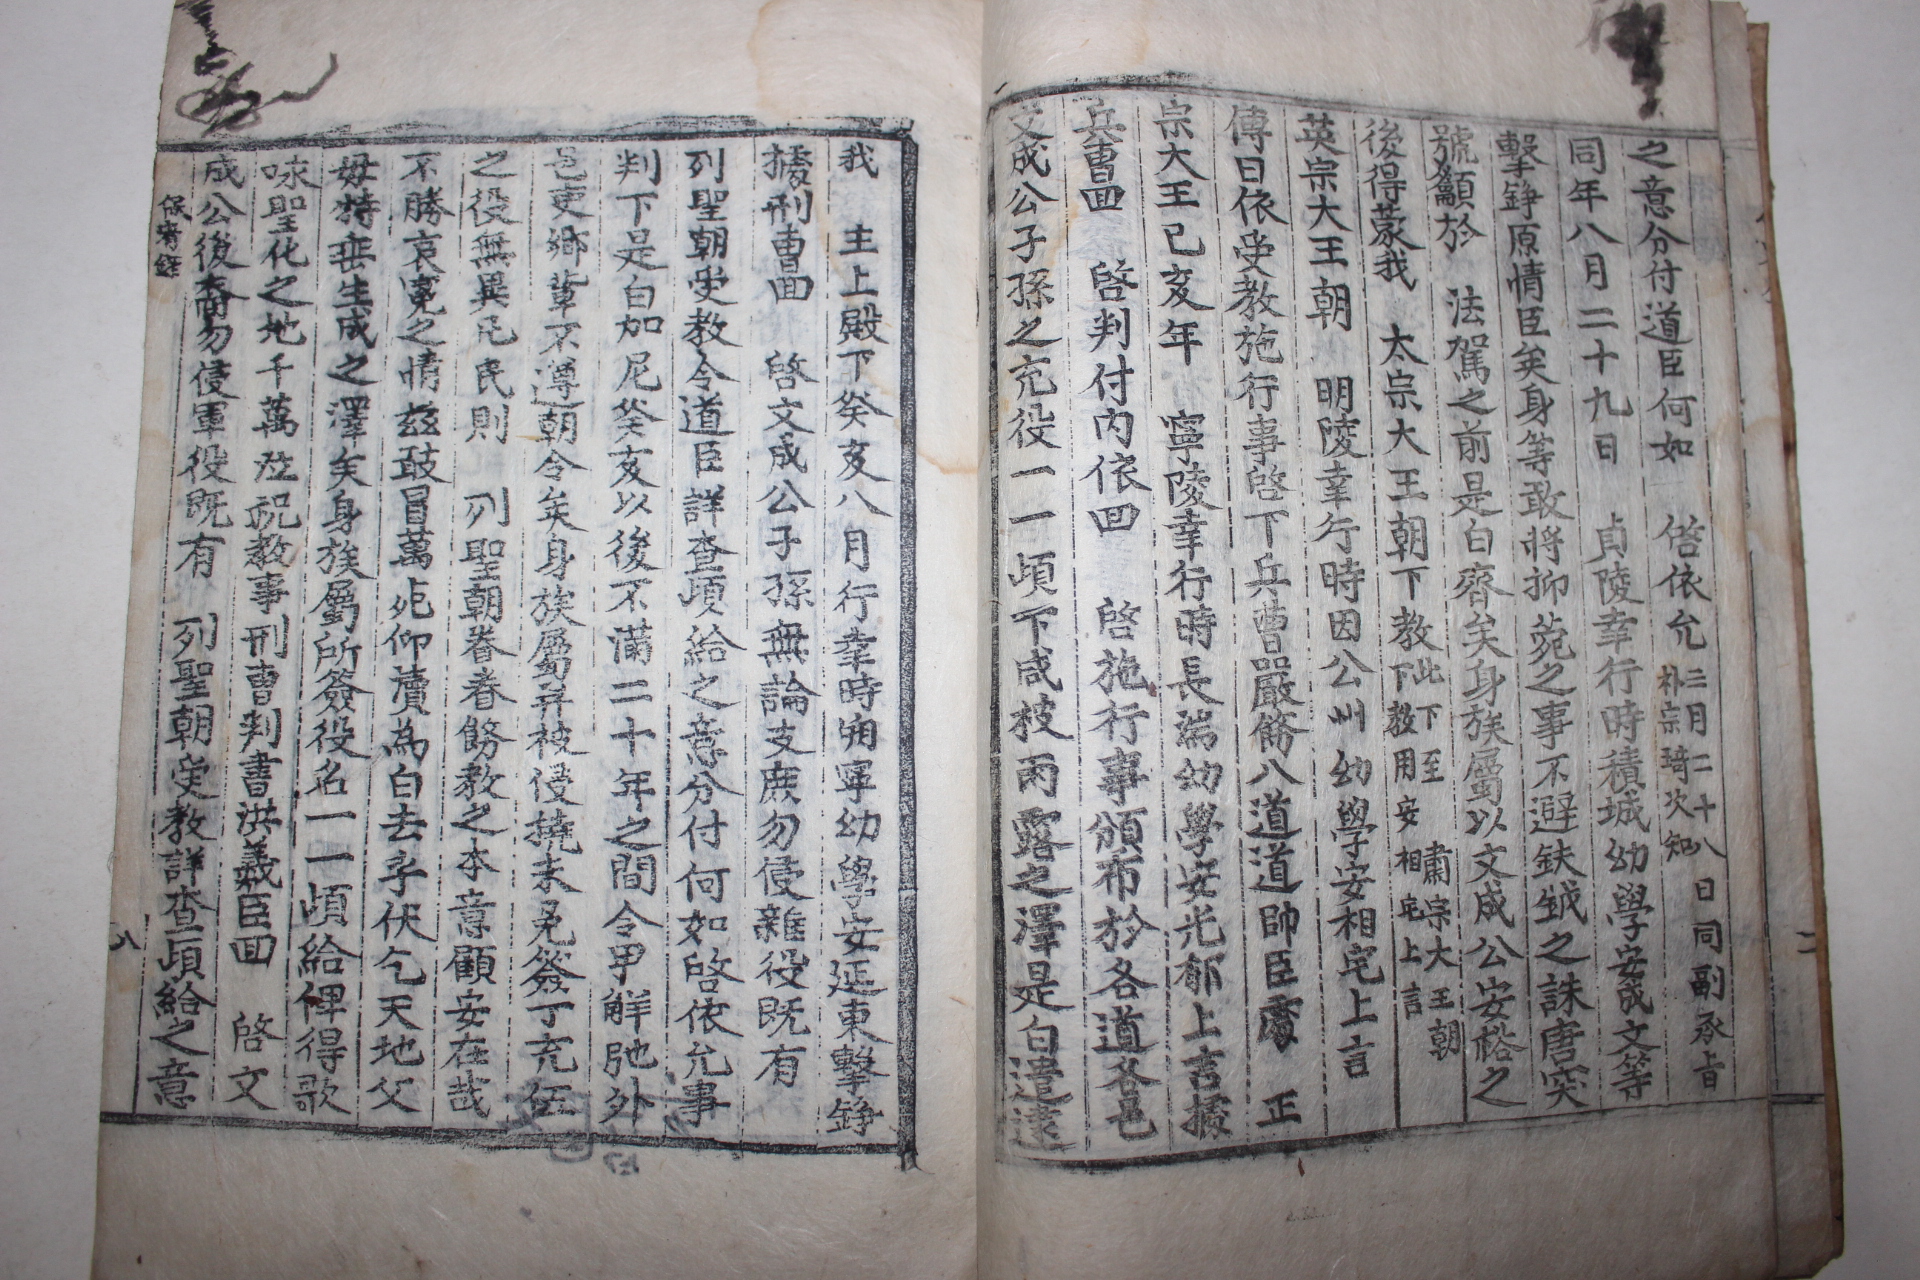 之意分付道臣何如　啓依允三月二十八日同副承旨朴宗琦次知
同年八月二十九日　貞陵幸行時積城幼學安成文等
擊錚原情臣矣身等敢將抑菀之事不避鈇鉞之誅唐突
號籲於　法駕之前是白齊矣身族屬以文成公安裕之
後得蒙我　太宗大王朝下教此下至　肅宗大王朝下教用安相宅上言
英宗大王朝　明陵幸行時因公州幼學安相宅上言
傳曰依受教施行事啓下兵曹嚴飭八道道帥臣處　正
宗大王己亥年　寧陵幸行時長湍幼學安光郁上言據
兵曹回　啓判付內依回　啓施行事頒布於各道各邑
文成公子孫之充役一一頉下咸被雨露之澤是白遣逮
我　主上殿下癸亥八月行幸時朔寧幼學安延東擊錚
據刑曹回　啓文成公子孫無論支庶勿侵雜役既有
列聖朝受教令道臣詳查頉給之意分付何如啓依允事
判下是白加尼癸亥以後不滿二十年之間令甲解弛外
邑吏鄉輩不遵朝令矣身族屬並被侵撓未免簽丁充伍
之役無異凡民則　列聖朝眷眷飭教之本意顧安在哉
不勝哀寃之情玆敢冒萬死仰瀆爲白去乎伏乞天地父
母特垂生成之澤矣身族屬所簽役名一一頉給俾得歌
咏聖化之地千萬泣祝教事刑曹判書洪羲臣回　啓文
成公後裔勿侵軍役既有　列聖朝受教詳查頉給之意
八
二